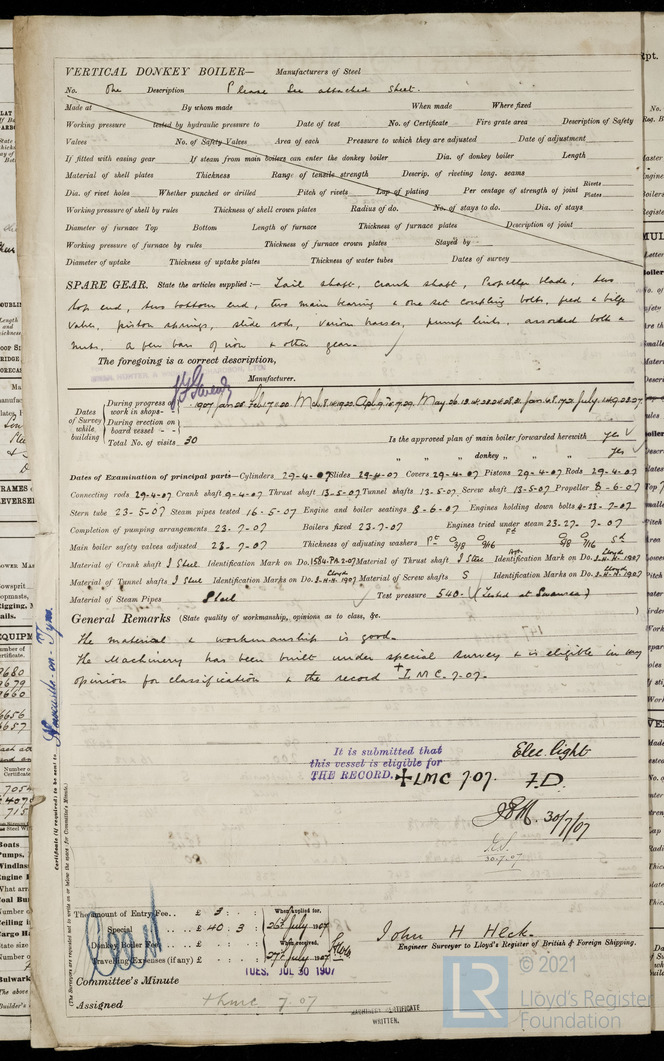 VERTICAL DONKEY BOILER— Manufacturers of Steel
No. One Description Please See attached Sheet.
Made at By whom made When made Where fixed
Working pressure tested by hydraulic pressure to Date of test No. of Certificate Fire grate area Description of Safety
Valves No. of Safety Valves Area of each Pressure to which they are adjusted Date of adjustment
If fitted with easing gear If steam from main boilers can enter the donkey boiler Dia. of donkey boiler Length
Material of shell plates Thickness Range of tensile strength Descrip. of riveting long. seams
Dia. of rivet holes Whether punched or drilled Pitch of rivets Lap of plating Per centage of strength of joint Rivets Plates
Working pressure of shell by rules Thickness of shell crown plates Radius of do. No. of stays to do. Dia. of stays
Diameter of furnace Top Bottom Length of furnace Thickness of furnace plates Description of joint
Working pressure of furnace by rules Thickness of furnace crown plates Stayed by
Diameter of uptake Thickness of uptake plates Thickness of water tubes Dates of survey
SPARE GEAR. State the articles supplied:— Tail shaft, crank shaft, Propeller blade, two
top end, two bottom end, two main bearing & one set coupling bolts, feed & bilge
valves, piston springs, slide rods, various brasses, pump links, assorted bolts &
nuts, a few bars of iron & other gear.
The foregoing is a correct description,
Manufacturer.
Dates of Survey while building
During progress of work in shops - - 1907 Jan
During erection on board vessel - - -
Total No. of visits 30
Is the approved plan of main boiler forwarded herewith yes
" " " donkey " " " yes
Dates of Examination of principal parts—Cylinders 29-4-07 Slides 29-4-07 Covers 29-4-07 Pistons 29-4-07 Rods 29-4-07
Connecting rods 29-4-07 Crank shaft 9-4-07 Thrust shaft 13-5-07 Tunnel shafts 13-5-07 Screw shaft 13-5-07 Propeller 8-6-07
Stern tube 23-5-07 Steam pipes tested 16-5-07 Engine and boiler seatings 8-6-07 Engines holding down bolts 4-23-7-07
Completion of pumping arrangements 23-7-07 Boilers fixed 23-7-07 Engines tried under steam 23-27-7-07
Main boiler safety valves adjusted 23-7-07 Thickness of adjusting washers
Material of Crank shaft I Steel Identification Mark on Do. Material of Thrust shaft I Steel Identification Mark on Do.
Material of Tunnel shafts I Steel Identification Marks on Do. Lloyds J.H.H. 1907 Material of Screw shafts S Identification Marks on Do. Lloyds J.H.H. 1907
Material of Steam Pipes Steel Test pressure 540 (Tested at Swansea)
General Remarks (State quality of workmanship, opinions as to class, &c.
The material & workmanship is good.
The Machinery has been built under special survey & is eligible in my
opinion for classification & the record + L M C. 7.07.
It is submitted that
this vessel is eligible for
THE RECORD. + LMC 7 07.
Elec. light
F.D.
30/7/07
30.7.07
Newcastle-on-Tyne
Certificate (if required) to be sent to
(The Surveyors are requested not to write on or below the space for Committee's Minute.)
The amount of Entry Fee . . £ 3 : : When applied for,
Special . . . . £ 40 . 3 : 26th July 1907
Donkey Boiler Fee . . . . £ : : When received,
Travelling Expenses (if any) £ : : 27th July 1907
John H Heck.
Engineer Surveyor to Lloyd's Register of British & Foreign Shipping.
TUES. JUL 30 1907
Committee's Minute
Assigned + LMC 7.07
MACHINERY CERTIFICATE
WRITTEN.
© 2021
LR
Lloyd's Register
Foundation